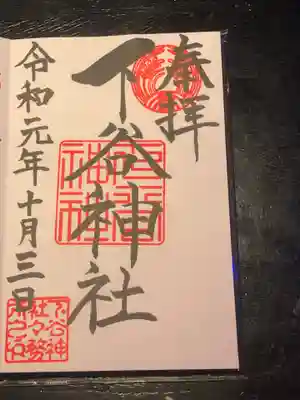 奉拝
下谷神社
令和元年十月三日
下谷神
社々務
所之印